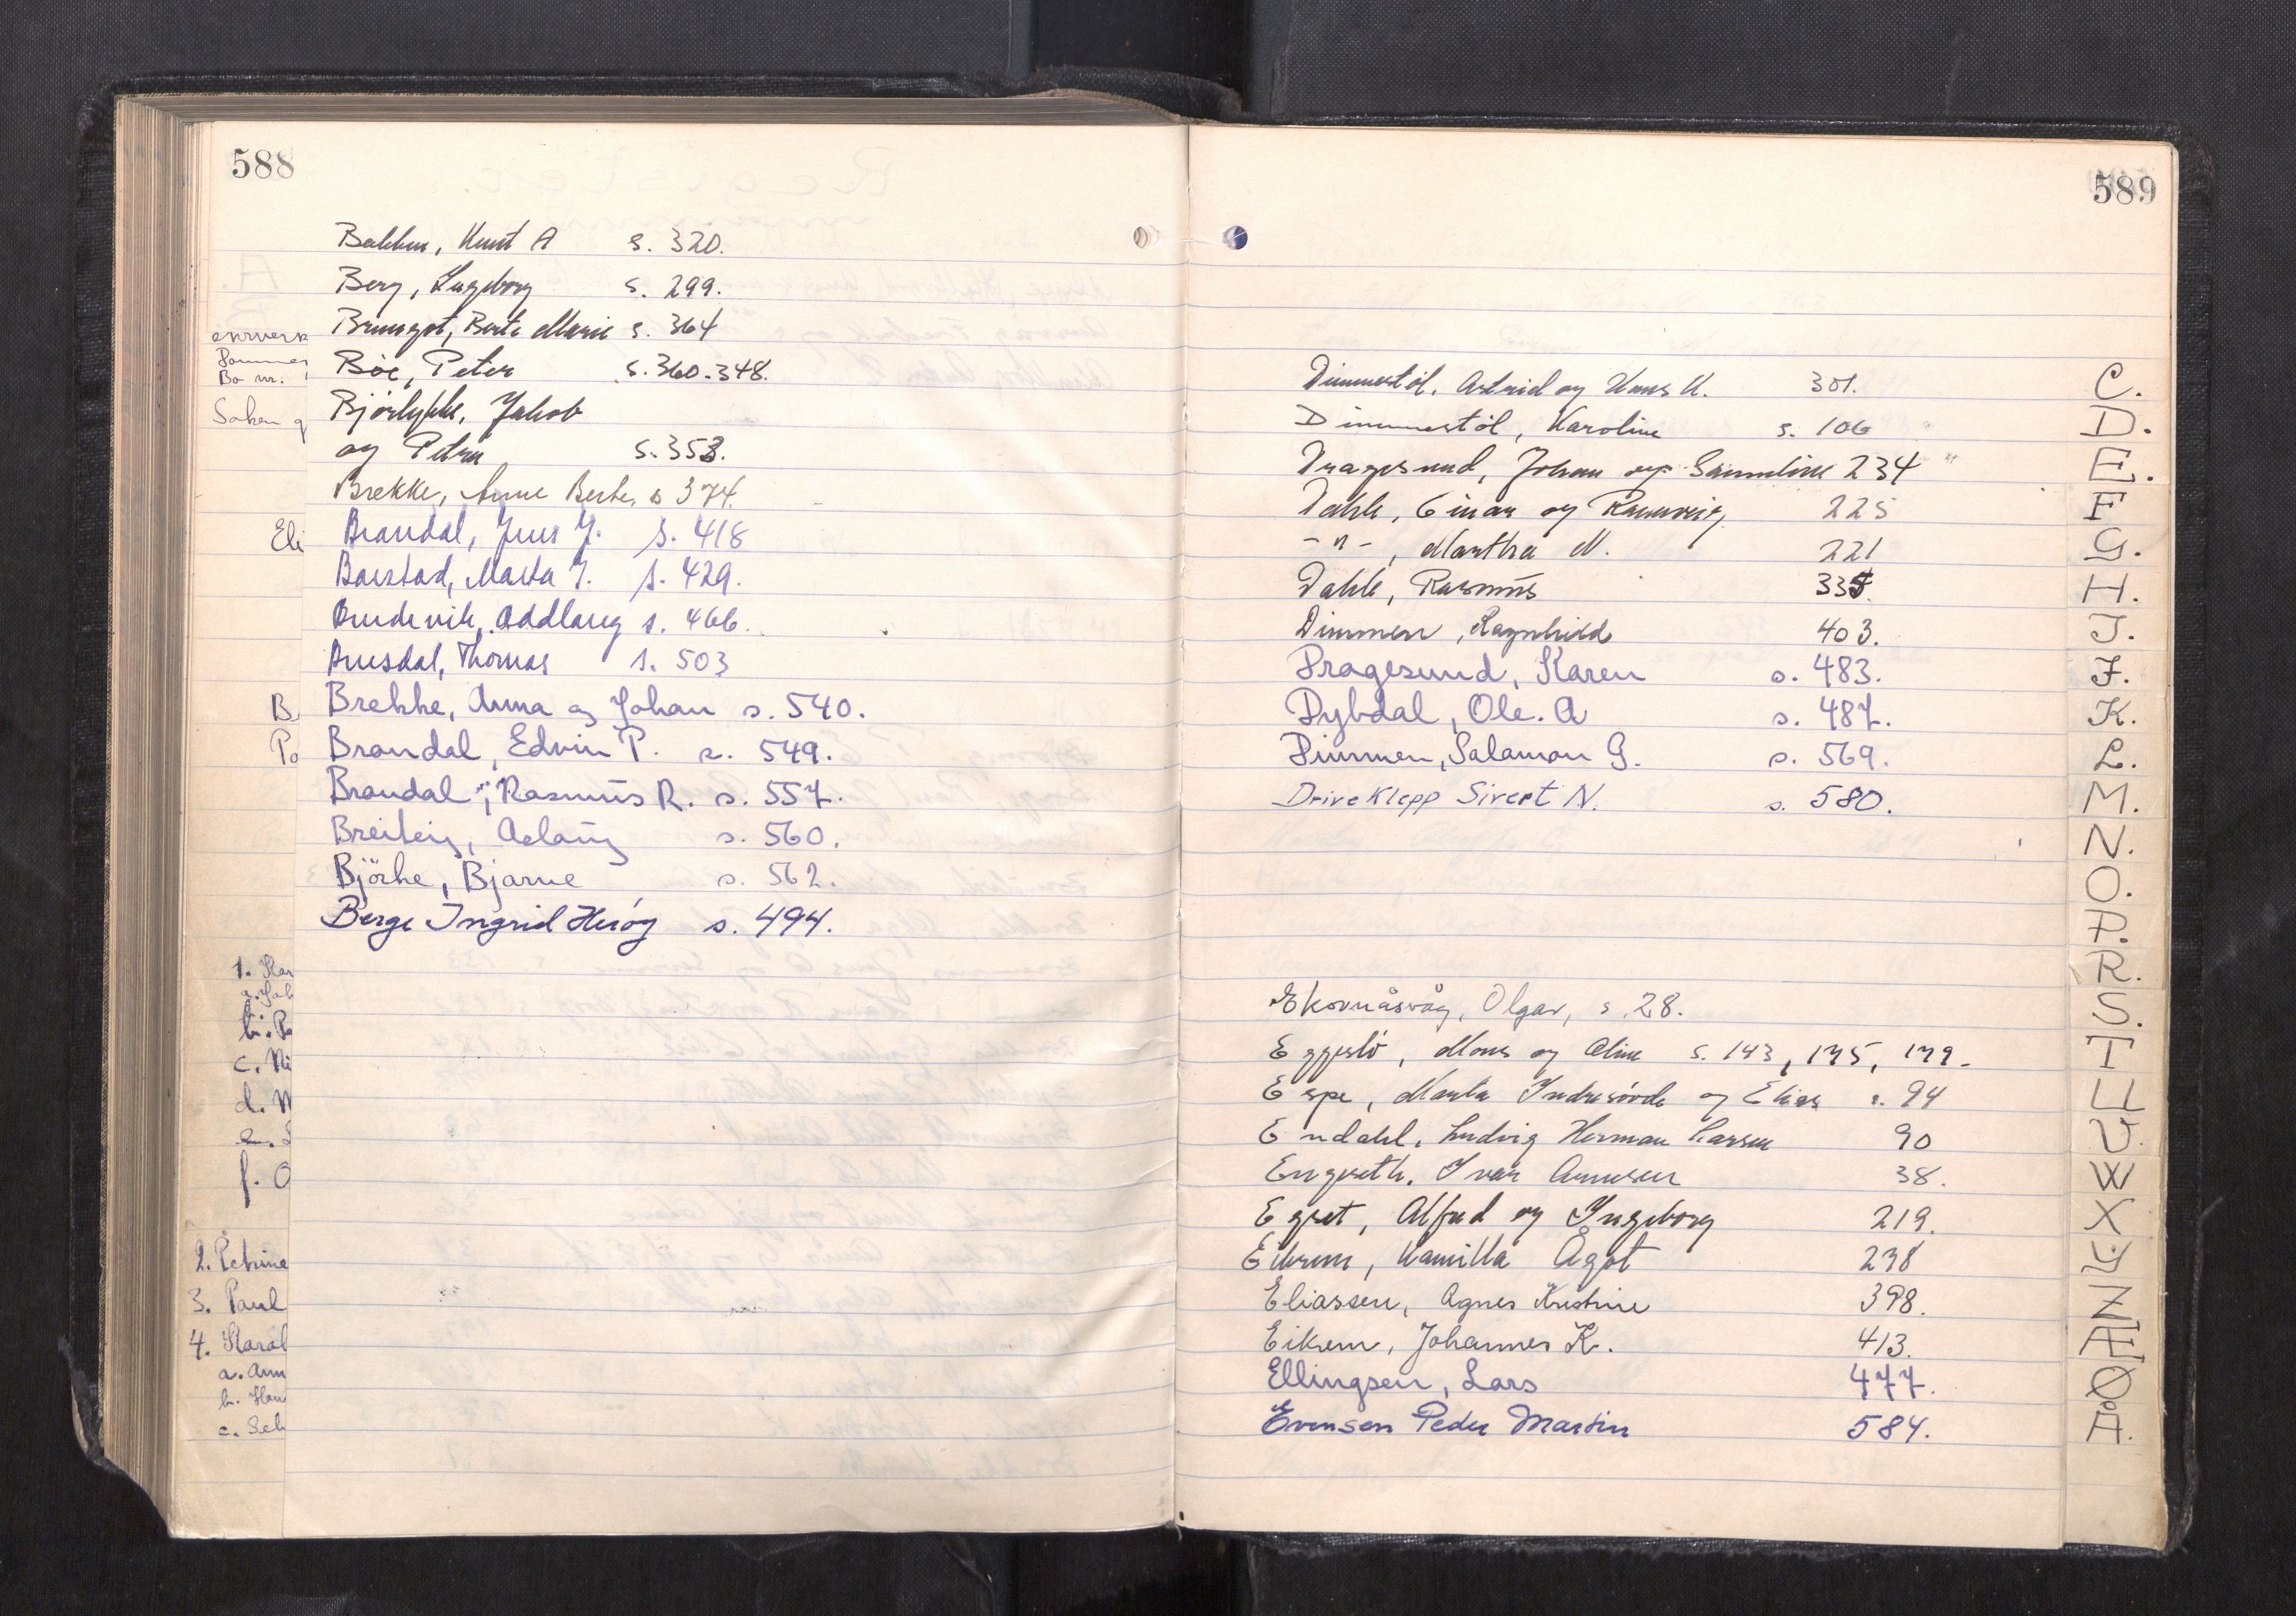 588
Bakken, Knut A s. 320.
Berg, Ingeborg s. 299.
Brungot, Berte Marie s. 364
Böe, Peter s. 360. 348.
Björlykke, Jakob
og Petra s. 353.
Brekke, Anne Berte, s 374.
Brandal, Jens J. s. 418
Barstad, Marta J. s. 429.
Oddlaug s. 466.
Thomas s. 503
Brekke, Anna og Johan s. 540.
Brandal, Edvin P. s. 549.
Brandal, Rasmus R. s. 557.
Breiteig, Aslaug s. 560.
Björke, Bjarne s. 562.
Berge Ingrid Herøy s. 494.
Eli
B
Po
1. Kar
a. Jab
c. Ni
f. O
2. Petrine
3. Paul
4. Karol
a. Ann
b. Han
c. Sel
589
Dimmestöl, Astrid og Hans K. 301.
Dimmestöl, Karoline s. 106
Dragesund, Johan og Samuline 234
Dahle, Einar og Rannveig 225
-"- , Martha N. 221
Dahle, Rasmus 335.
Dimmen, Ragnhild 403.
Dragesund, Karen s. 483.
Dybdal, Ole. A s. 487.
Dimmen, Salamon G. s. 569.
Driveklepp Sivert N. s. 580.
Ekornåsvåg, Olgar, s. 28.
Eggesbö, Mons og Oline s. 143, 175, 179.
Espe, Marta Indresövde og Elias s. 94
Endahl, Ludvig Herman Larsen 90
Engeseth, Ivar Annesen 38.
Egset, Alfred og Ingeborg 219.
Eikrem, Kamilla Ågot 238
Eliassen, Agnes Kristine 398.
Eikrem, Johannes K. 413.
Ellingsen, Lars 477.
Evensen Peder Martin 584.
C.
D.
E.
F
G.
H.
I.
J.
K.
L.
M.
N.
O.
P.
R.
S.
T
U
V.
W
X
Y.
Z
Æ
Ø
Å.